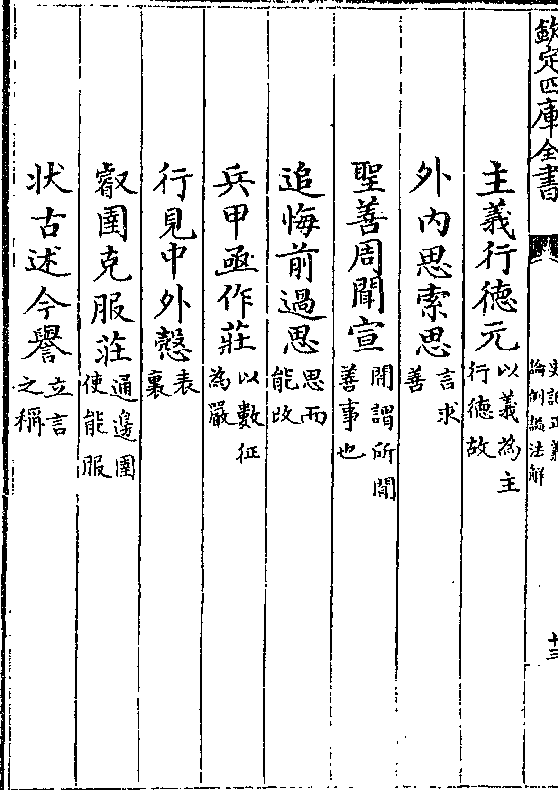 欽定四庫全書
史記正義
論例諡法解
十三
主義行徳元 以義為主行徳故
外内思索思 言求善
聖善周聞宣 聞謂所聞善事也
追悔前過思 思而能改
兵甲亟作莊 以數征為嚴
行見中外愨 表裏
叡圉克服莊 通邊圉使能服
狀古述今譽 立言之稱